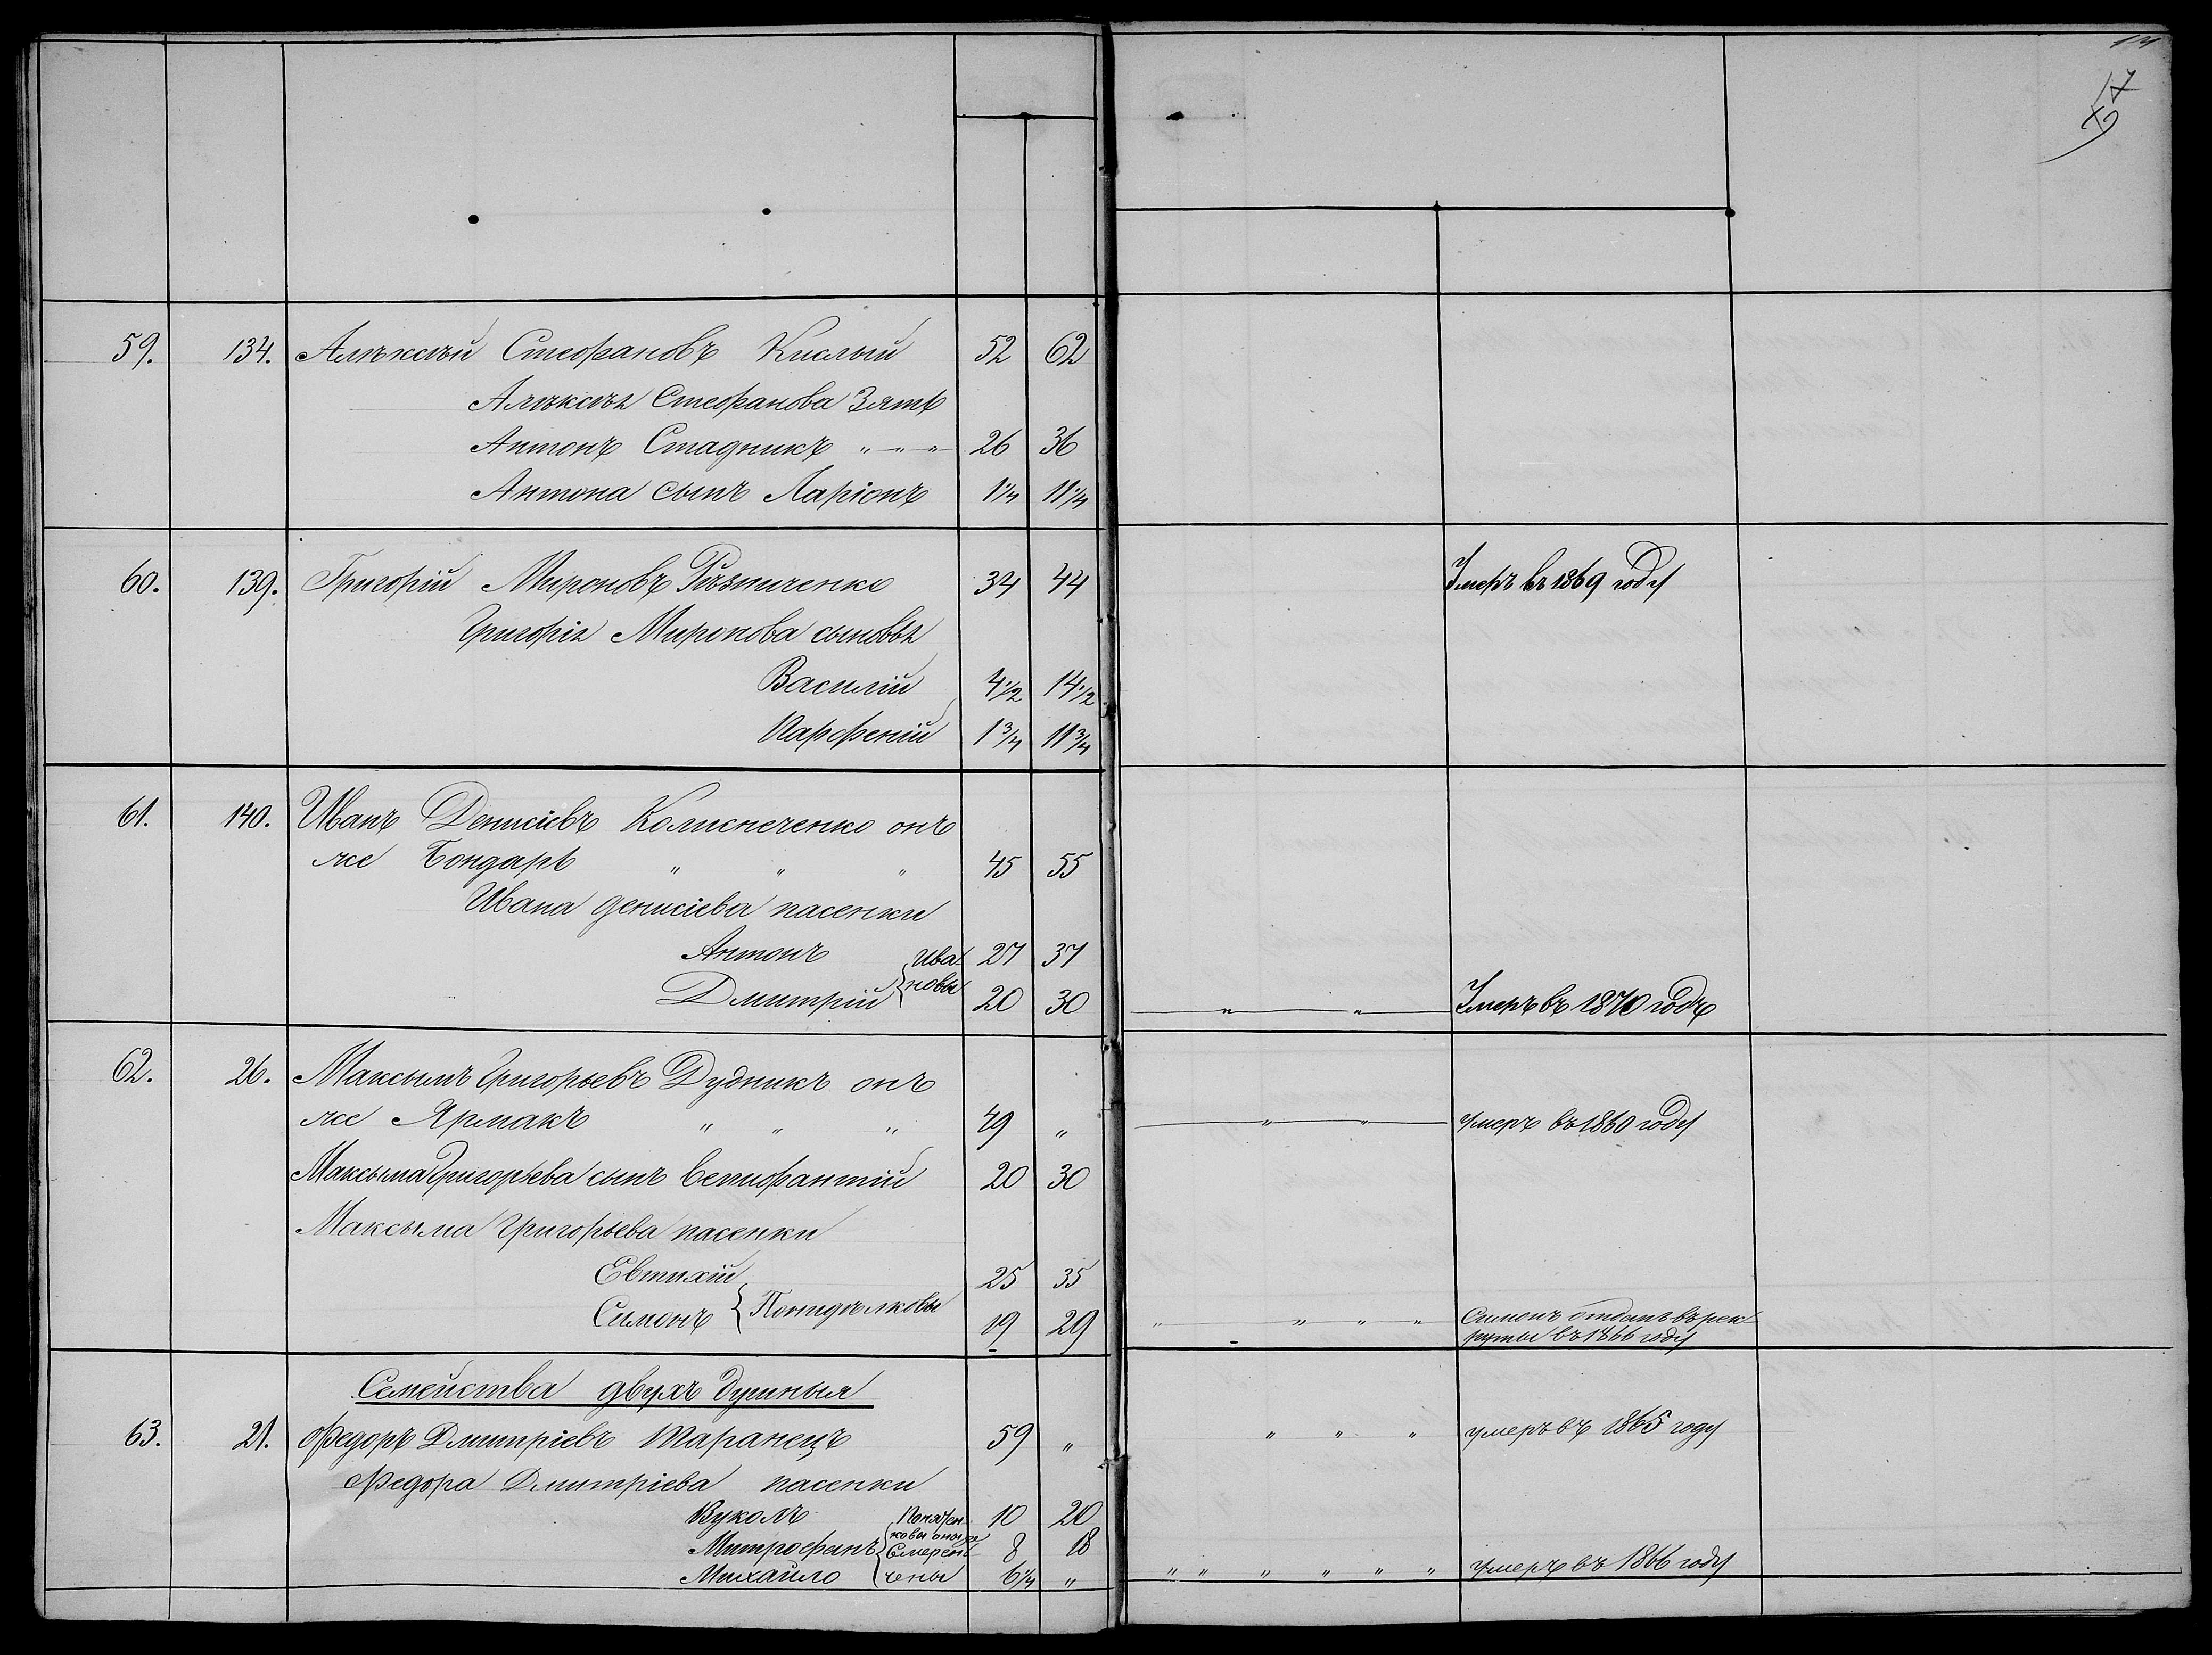 14
17
59. 134. Алѣксѣй Стефановъ Кислый 52 62
Алѣксѣя Стефанова Зять
Антонъ Стадникъ " " " 26 36
Антона сынъ Ларіонъ 1 1/4 11 1/4
60. 139. Григорій Мироновъ Рѣзниченко 34 44 Умеръ въ 1869 году
Григорія Миронова сыновья
Василій 4 1/2 14 1/2
Парфеній 1 3/4 11 3/4
61. 140. Иванъ Денисіевъ Колисниченко онъ
же Бондарь " " " 45 55
Ивана денисіева пасенки
Антонъ Ива- 27 37
Дмитрій новы 20 30 " " Умеръ въ 1870 годѣ
62. 26. Максымъ Григорьевъ Дудникъ онъ
же Ярмакъ " " " 49 " " " умеръ въ 1860 году
Максыма Григорьева сынъ Вепифантій 20 30
Максыма Григорьева пасенки
Евтихій 25 35
Симонъ 19 29 " " " " Симонъ отданъ въ рек-
руты въ 1866 году
Семейства двухъ душныя
63. 21. Федоръ Дмитріевъ Таранецъ 59 " " " " умеръ въ 1865 году
Федора Дмитріева пасенки
Вуколъ 10 20
Митрофанъ 8 18
Михайло чены 6 1/4 " " " " " " " умеръ въ 1866 году